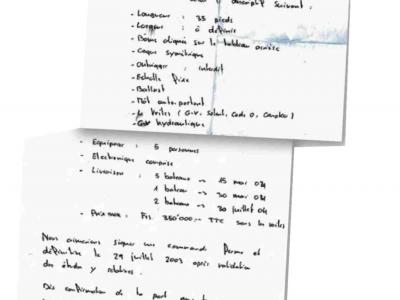 descriptif suivant :
- Longueur : 35 pieds
- Largeur : à définir
- Bôme alignée sur le tableau arrière
- Coque symétrique
- Outrigger : interdit
- Echelle fixe
- Ballast
- Mât auto-portant
- 4 Voiles ( G-V, Solent, Code 0, Genaker )
- hydraulique
- Equipage : 5 personnes
- Electronique comprise
- Livraison : 5 bateaux → 15 mai 04
1 bateau → 30 mai 04
2 bateaux → 30 juillet 04
- Prix max : Frs. 350'000.- TTC sans les voiles
Nous aimerions signer une commande ferme et
définitive le 29 juillet 2003 après validation
des études y relatives.
Dès confirmation de la part